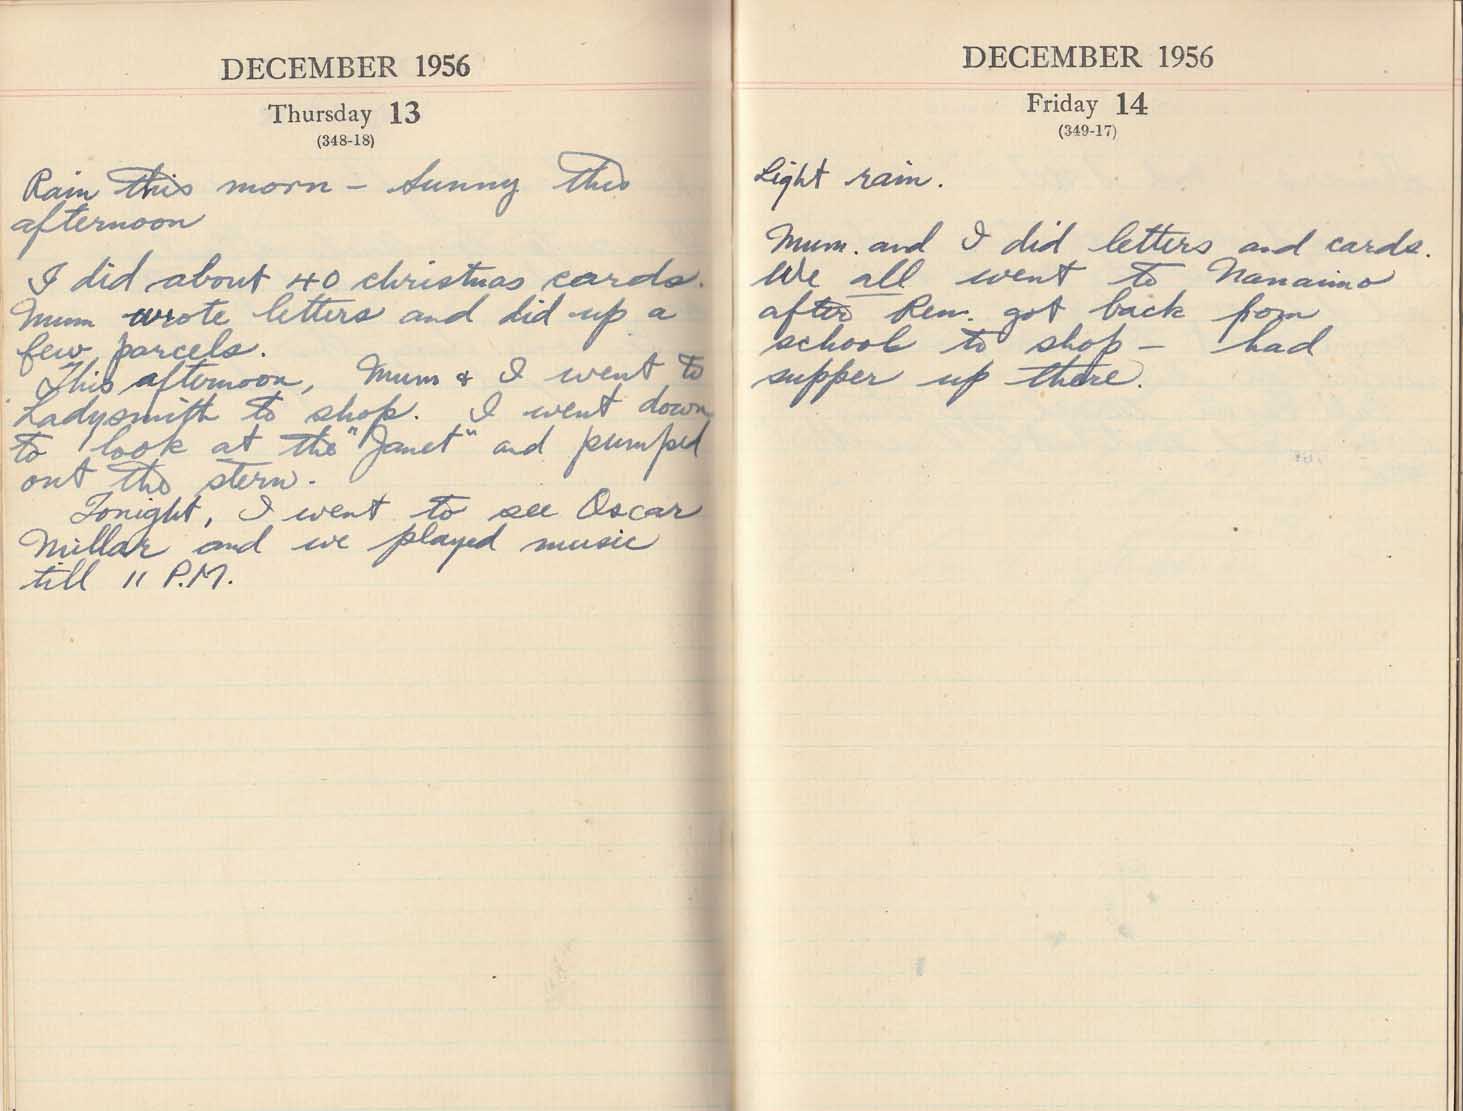 DECEMBER 1956
Thursday 13
(348-18)
Rain this morn - Sunny this
afternoon
I did about 40 christmas cards.
Mum wrote letters and did up a
few parcels.
This afternoon, Mum & I went to
Ladysmith to shop. I went down
to look at the "Janet" and pumped
out the stern.
Tonight, I went to see Oscar
Millar and we played music
till 11 P.M.
DECEMBER 1956
Friday 14
(349-17)
Light rain.
Mum. and I did letters and cards.
We all went to Nanaimo
after Rem. got back from
school to shop - had
supper up there.